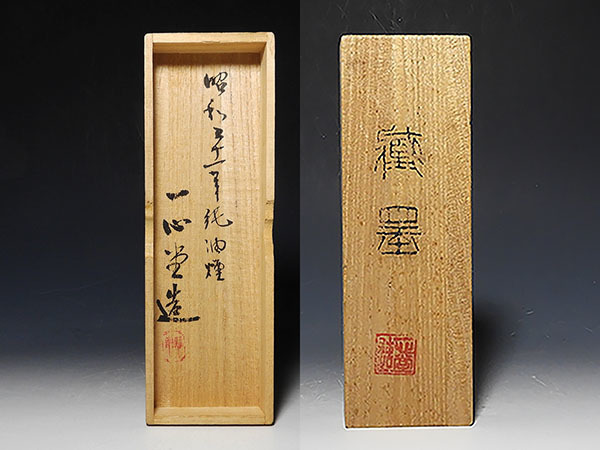 昭和五十一年純油煙
一心堂造
藏墨